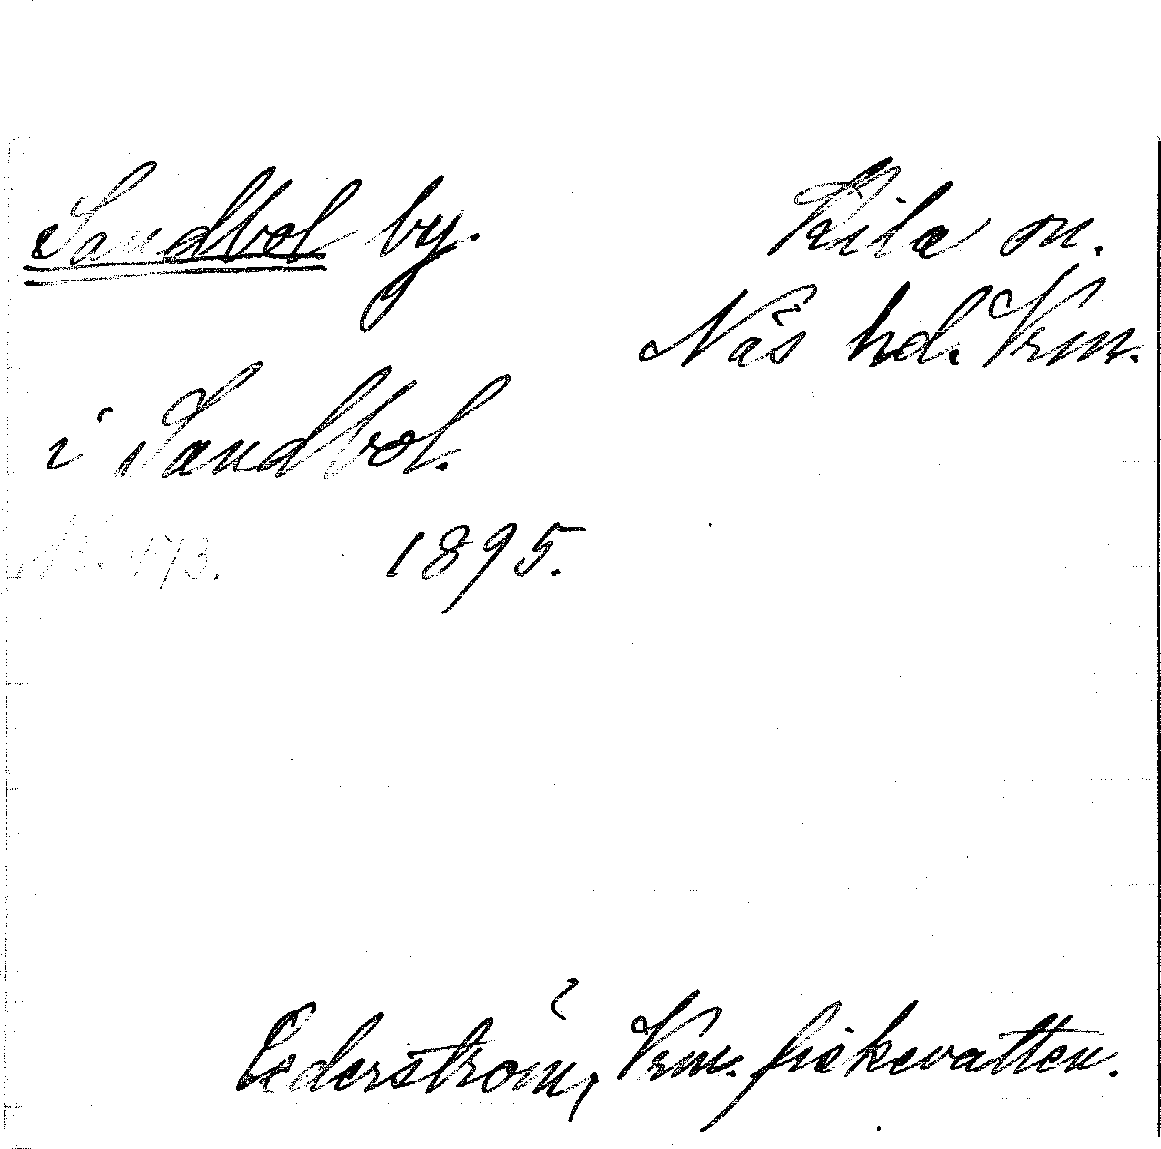 Sandbol by. Kila sn.
Näs hd. Vrm.
i Sandbol.
173. 1895.
Cederström, Vrm. fiskevatten.